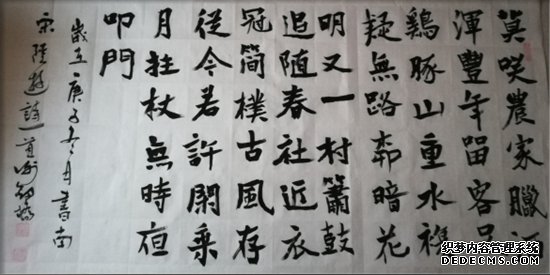 莫咲農家臘酒
渾豐年留客足
鷄豚山重水複
疑無路柳暗花
明又一村簫鼓
追随春社近衣
冠簡樸古風存
從今若許閑乘
月拄杖無時夜
叩門
歲在庚子冬月書南
宋陸游詩
织梦内容管理系统
DEDECMS.COM